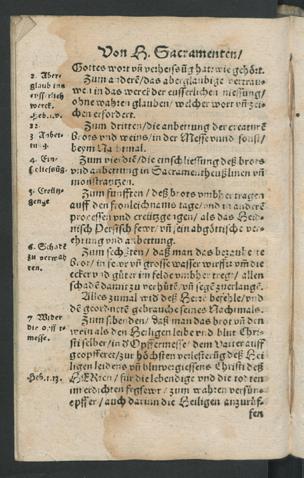 Von H. Sacramenten/
Gottes wort vñ verheissũg hat/ wie gehört.
2. Aber-
glaub im
eusserlich
werck.
Zum andern/ das abergläubige vertraw-
en in das werck der eusserlichen niessung/
ohne wahren glauben/ welcher wort vñ zei-
chen erfordert.
3. Anbet-
tung.
Zum dritten/ die anbettung der creaturē
Brots vnd weins/ in der Messe vnd sonst/
beym Nachtmal.
4. Ein-
schliessūg.
Zum vierden/ die einschliessung deß brots
vnd anbettung in Sacramentheußlinen vñ
monstrantzen.
5. Creütz-
genge
Zum fünfften/ deß brots vmbher tragen
auff den fronleichnams tage/ vnd in andere
processen vnd creützgengen/ als das Heid-
nisch Persisch fewr/ vñ ein abgöttische ver-
ehrung vnd anbettung.
6. Schade
zu verwah
ren.
Zum sechsten/ daß man das
Brot/ in fewr vñ grosse wasser wirfft/ vm̃ die
ecker vñ güter im felde vmbher tregt/ allen
schadē damit zu verhüten/ vñ segē zuerlangē.
Alles zumal wid deß Herrē befehle/ vnd
dē geordnetē gebrauche seines Nachtmals.
7. Wider
die opffer
messe.
Zum sibenden/ daß man das brot vñ den
wein als den Heiligen leibe vnd blut Chri-
sti selber/ in d Opffermesse/ dem Vatter auff
geopfferet/ zu höchsten verlesterūg deß Hei
ligen leidens vñ blutvergiessens Christi deß
Heb. 1. 13.
HERren/ für die lebendige vnd die todten
im erdichten fegfewr/ zum wahren versün-
opffer/ auch darum die Heiligen anzurüf-
fen